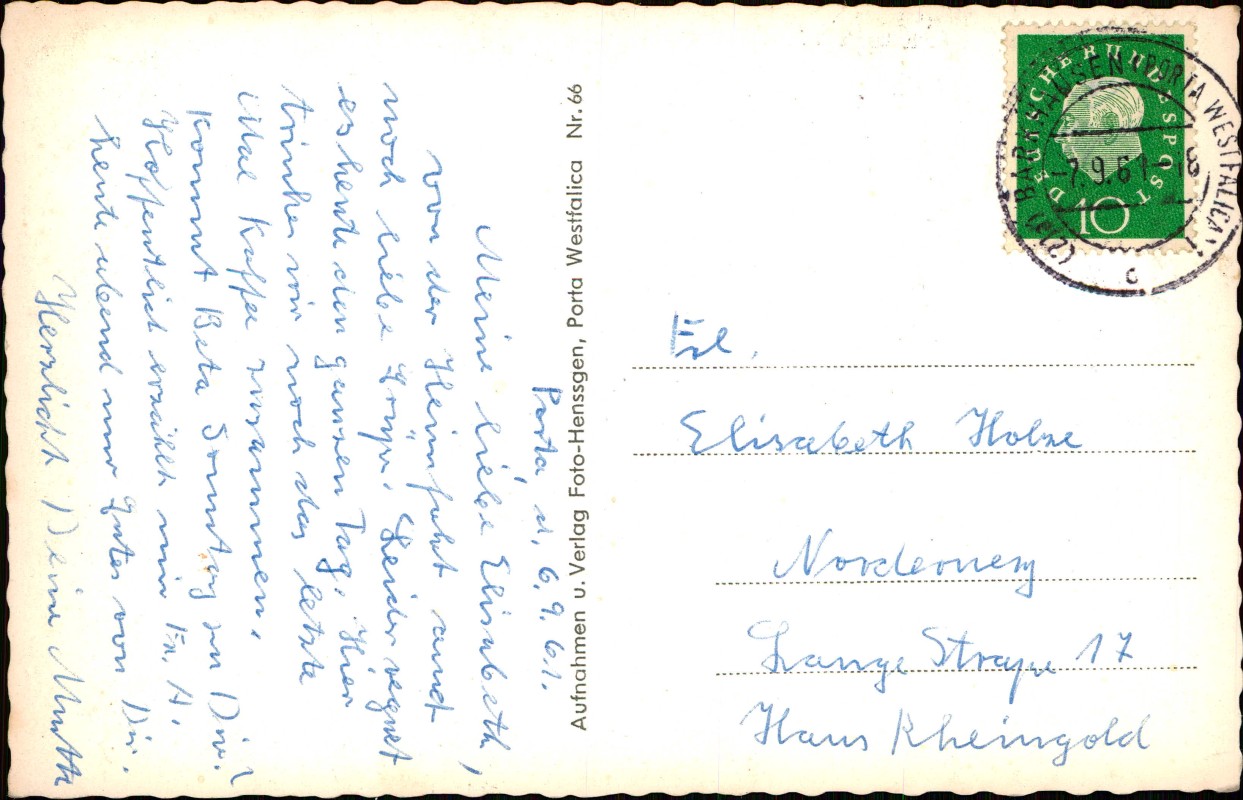 Porta, d. 6.9.61.
Meine liebe Elisabeth,
von der Heimfahrt
noch liebe Grüße. Leider regnet
es heute den ganzen Tag. Hier
trinken wir noch das letzte
Kaffee zusammen.
Kommt Beta Sonntag zu Dir?
Hoffentlich erzählt mir Fr. H.
heute abend nur gutes von Dir.
Herzlichst Deine
Aufnahmen u. Verlag Foto-Henssgen, Porta Westfalica Nr. 66
DEUTSCHE BUNDESPOST
10
(21a) BARKHAUSEN (PORTA WESTFALICA)
-7.9.61-18
c
Frl.
Elisabeth Holze
Norderney
Lange Straße 17
Haus Rheingold